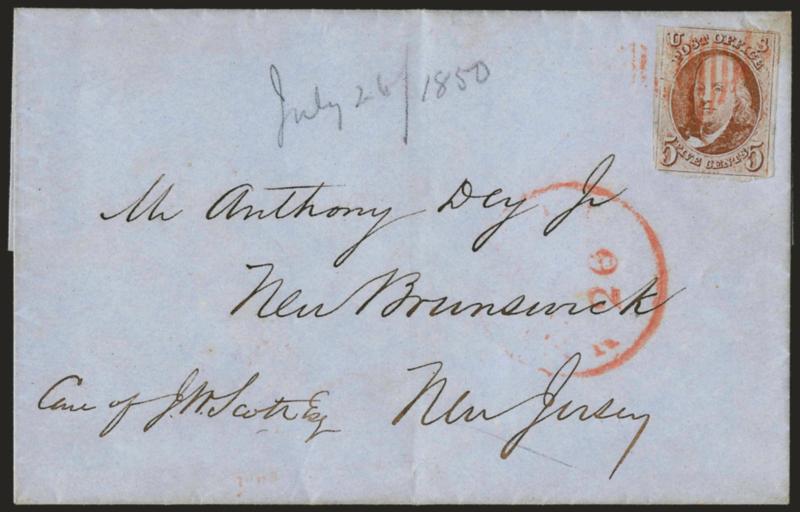 U S
POST OFFICE
FIVE CENTS
5 5
July 26/1850
Mr Anthony Dey Jr
New Brunswick
Care of J.W. Scott Esq New Jersey
26